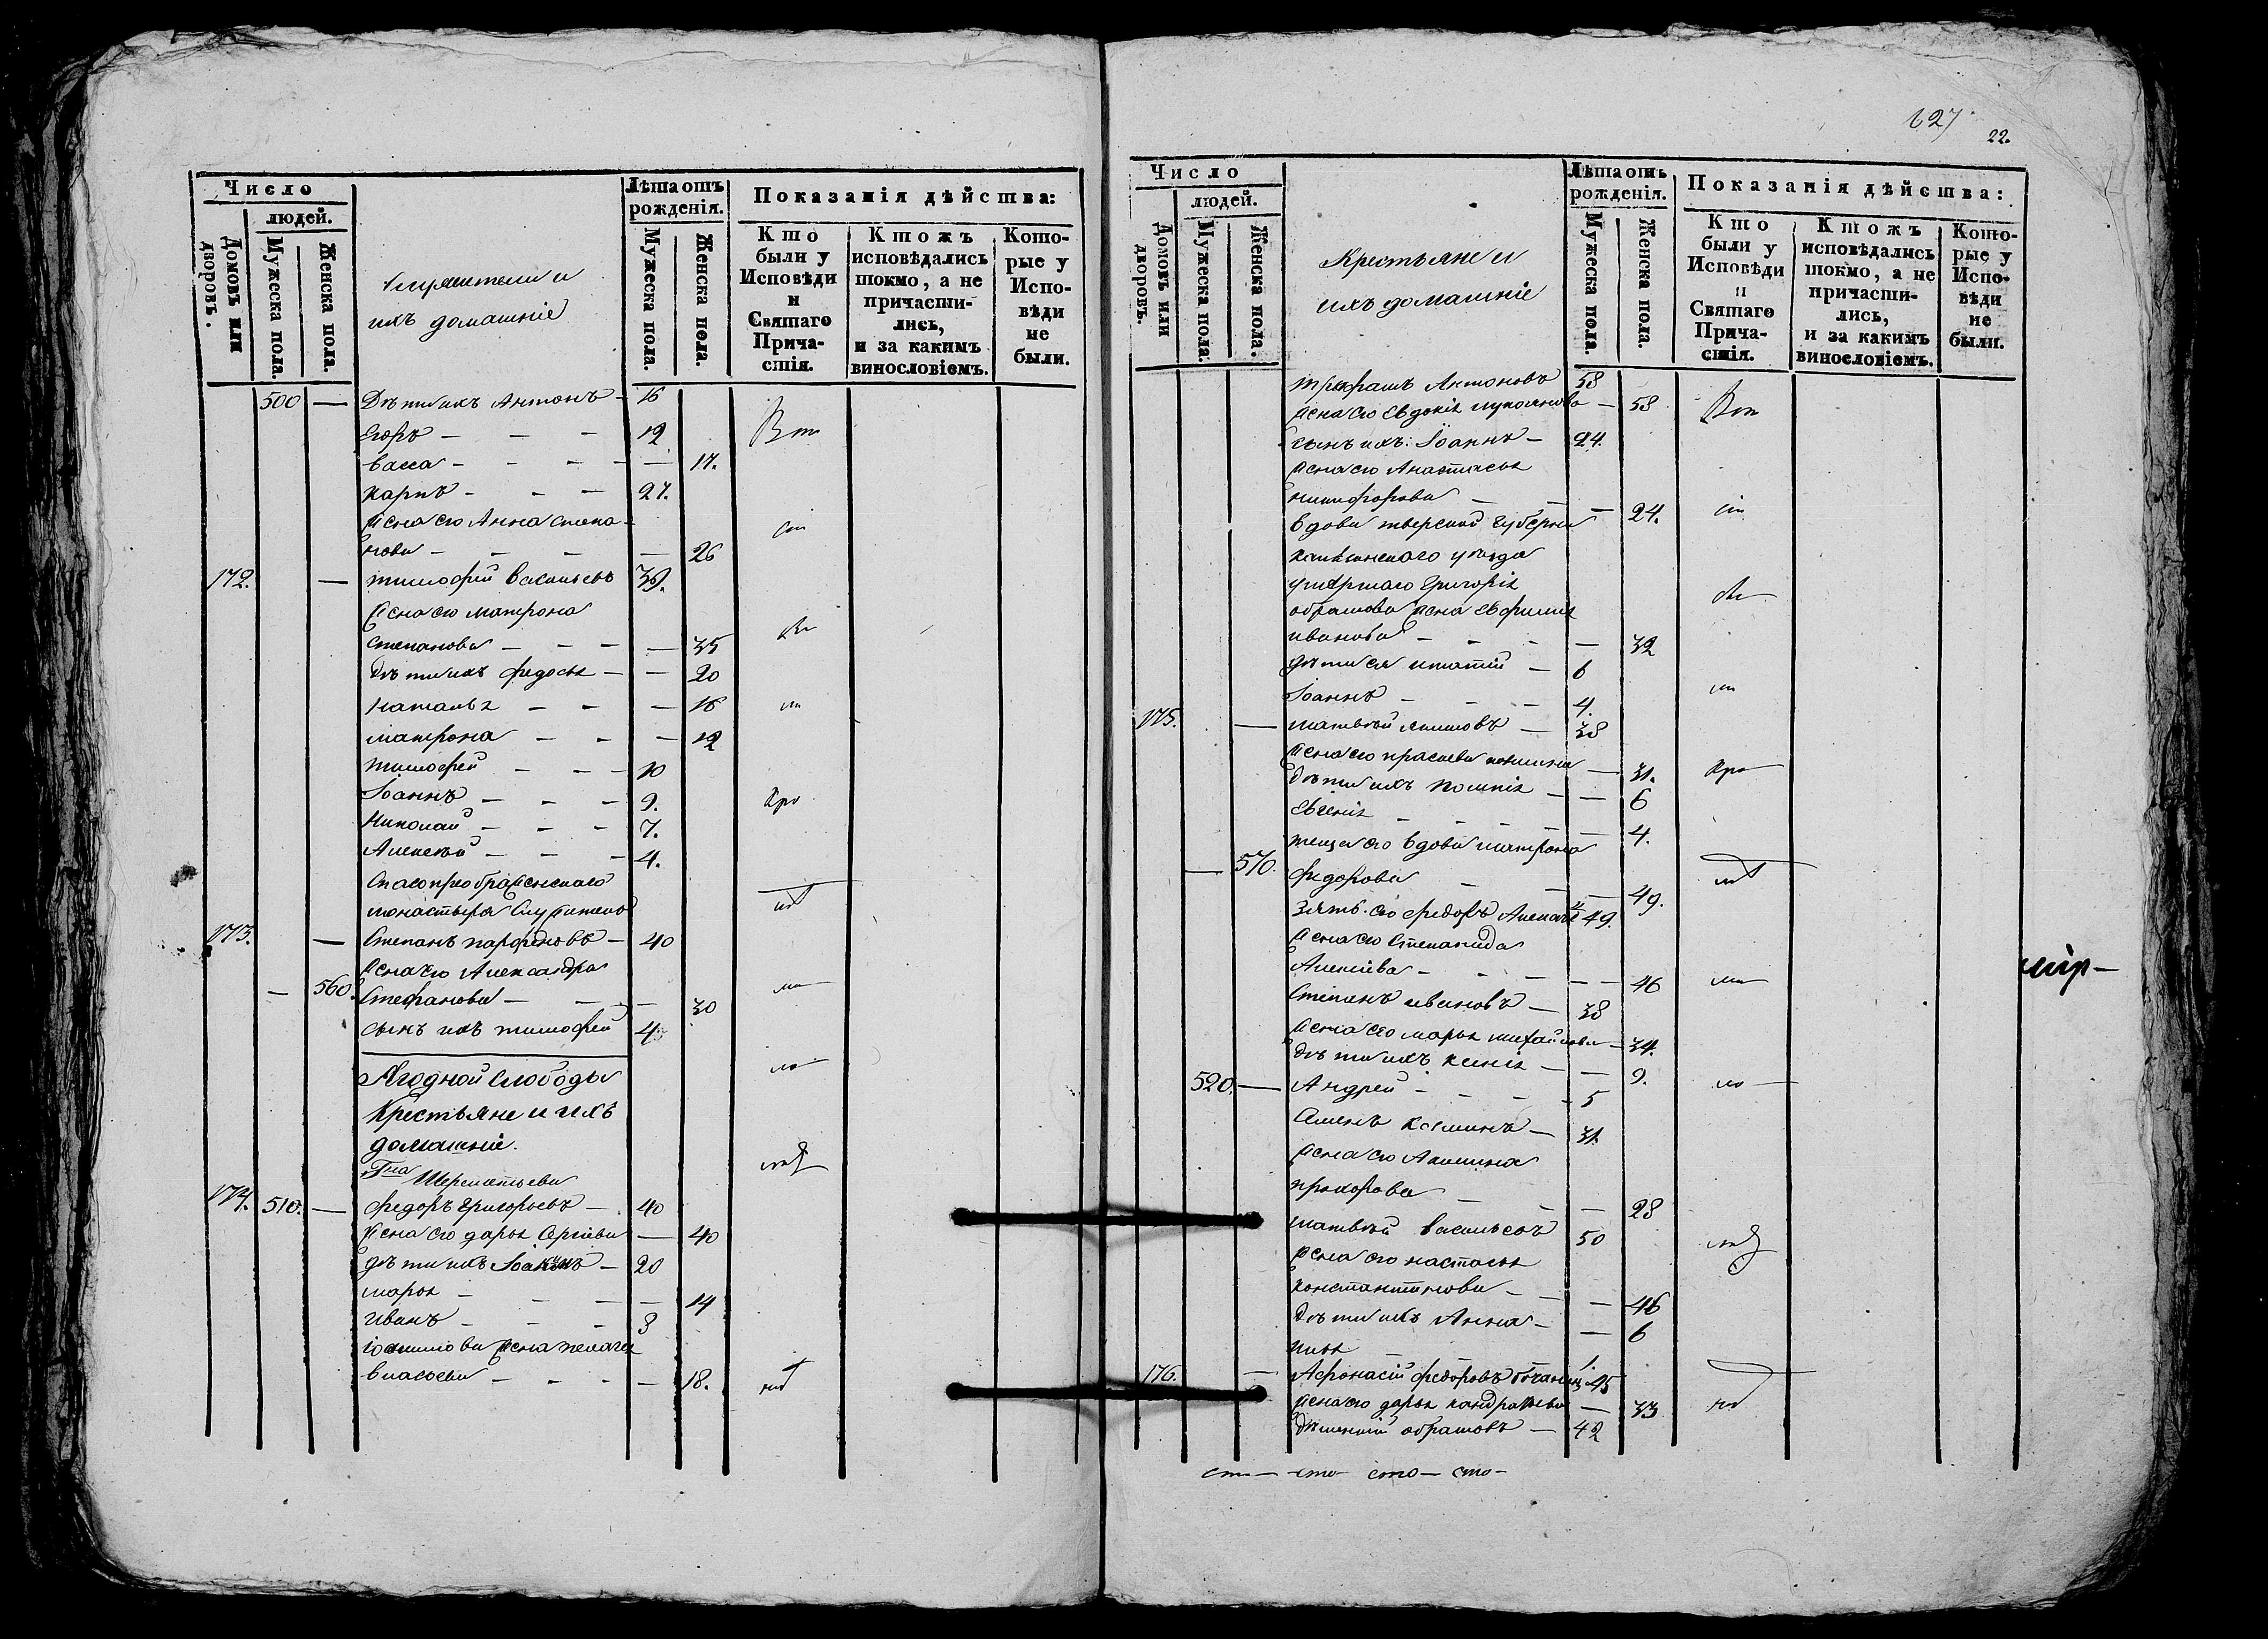 Число
людей.
Домовъ или дворовъ.
Мужеска пола.
Женска пола.
Служители и
ихъ домашніе
Лѣта отъ рожденія.
Мужеска пола.
Женска пола.
Показанія дѣйства:
Кто были у Исповѣди и Святаго Прича-стія.
Ктожъ исповѣдались токмо, а не причасти-лись, и за какимъ винословіемъ.
Кото-рые у Испо-вѣди не были.
500 — Дѣти ихъ Антонъ — 16
Егоръ — — — 12
Васса — — — — 17.
Карпъ — — — 27.
Жена его Анна Степа-
нова — — — — 26
172. — Тимофей Васильевъ 39.
Жена его Матрона
Степанова — — — — 35
Дѣти ихъ Федосья — — 20
Наталья — — — 16
Матрона — — — 12
Тимофей — — — 10
Іоаннъ — — — 9.
Николай — — — 7.
Алексѣй — — — 4.
Спасопреображенскаго
монастыря Служитель
173. — Степанъ Парфеновъ — 40
Жена его Александра
— 560. Стефанова — — — 30
Сынъ ихъ Тимофей 4
Ягодной Слободы
Крестьяне и ихъ
домашніе.
Гна Шереметьева
174. 510. — Федоръ Григорьевъ — 40
Жена его Дарья Сергіева — 40
Дѣти ихъ Іоакимъ — 20
Марья — — — — 14
Иванъ — — — 8
Іоакимова жена Пелагея
Власьева — — — — 18.
127
22.
Число
людей.
Домовъ или дворовъ.
Мужеска пола.
Женска пола.
Крестьяне и
ихъ домашніе
Лѣта отъ рожденія.
Мужеска пола.
Женска пола.
Показанія дѣйства:
Кто были у Исповѣди и Святаго Прича-стія.
Ктожъ исповѣдались токмо, а не причасти-лись, и за какимъ винословіемъ.
Кото-рые у Испо-вѣди не были.
Антоновъ 58
Жена его Евдокія Лукоянова — 58
Сынъ ихъ: Іоаннъ — 24.
Жена его Анастасья
Никифорова — — — 24.
Вдова Тверской губерніи
уѣзда
умершаго Григорія
Абрамова жена Евфимія
Иванова — — — — 32
Дѣти ея Игнатій — 6
Іоаннъ — — — 4.
175. — Матвѣй Якимовъ — 38
Жена его — 31.
Дѣти ихъ — — 6
Евгенія — — — — 4.
Теща его вдова Матрона
— 570. Федорова — — — 49.
Зять его Федоръ 49.
Жена его Степанида
Алексіева — — — — 46
Степанъ Ивановъ — 38
Жена его Марья Михайлова — 34.
Дѣти ихъ Ксенія — — 9.
520. — Андрей — — — 5
Семенъ — 31.
Жена его Акилина
Прохорова — — — 28
Матвѣй Васильевъ 50
Жена его Настасья
Константинова — — — 46
Дѣти ихъ Анна — — 6
176. — Афонасій Федоровъ 45
Жена его Дарья Кондратьева — 33
Абрамовъ — 42
сто — сто — сто — сто —